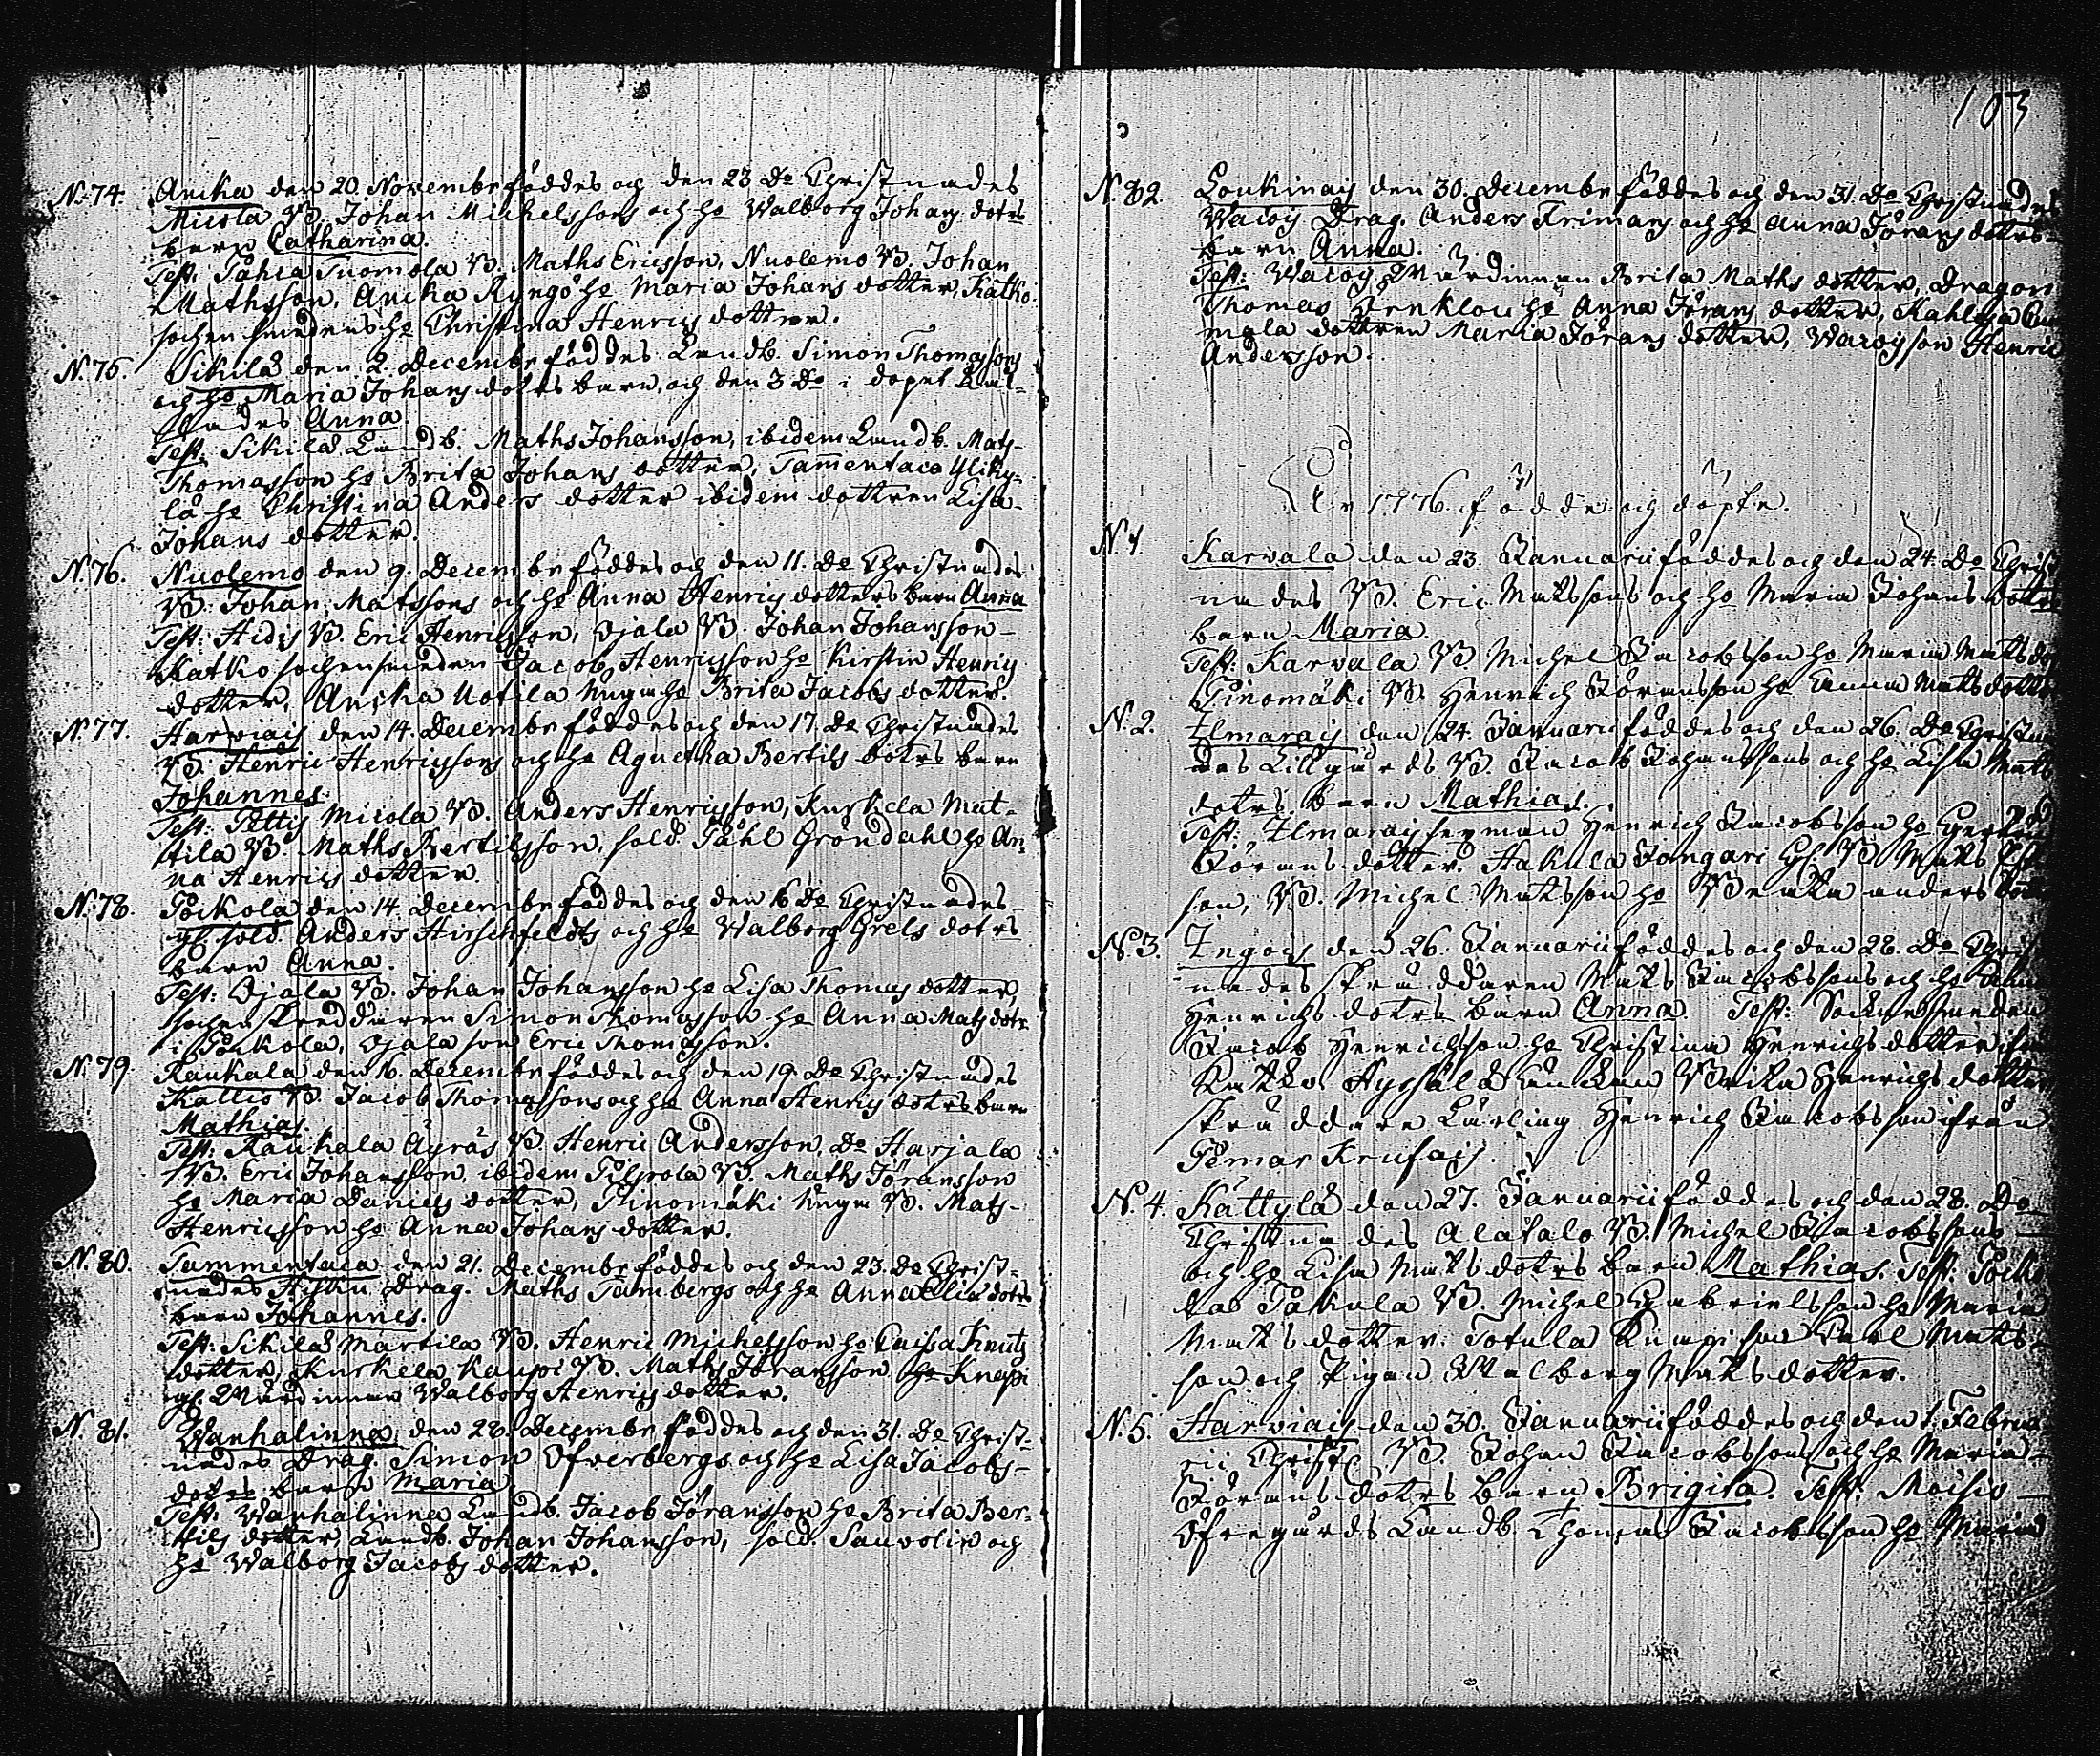 N. 74. Anika den 20. Novembr föddes och den 23 Do Christnades
Micola B. Johan Michelssons och ho Walborg Johans dotrs
barn Catharina.
Test: Pahia Tuomola B. Maths Ericsson, Nuolemo B. Johan
Mathsson, Anika Ryngö ho Maria Johans dotter, Katko
sochensmedens ho Christina Henrics dotter.
N. 75. Sikilä den 2. Decembr föddes Landb. Simon Thomassons
och ho Maria Johans dotrs barn, och den 3 Do i dopet kal-
lades Anna.
Test: Sikilä Landb. Maths Johansson, ibidem Landb. Mats
Thomasson ho Brita Johans dotter, Tammentaca Yliky-
lä ho Christina Anders dotter ibidem dottren Lisa
Johans dotter.
N. 76. Nuolemo den 9. Decembr föddes och den 11. Do Christnades
B. Johan Matssons och ho Anna Henrics dotters barn Anna
Test: Hidis B. Eric Henricsson, Ojala B. Johan Johansson
Katko sochensmeden Jacob Henricsson ho Kirstin Henrics
dotter, Anika Uotila ho Brita Jacobs dotter.
N. 77. Harviais den 14. Decembr föddes och den 17. Do Christnades
B. Henric Henricssons och ho Agnetha Bertils dotrs barn
Johannes.
Test: Pettis Micola B. Anders Henricsson, Kurkela Mat-
tila B. Maths Bertilsson, sold. Påhl Gröndahl ho An-
na Henrics dotter.
N. 78. Pöikola den 14. Decembr föddes och den 16 Do Christnades
sold. Anders Hirschfeldts och ho Walborg Grels dotrs
barn Anna.
Test: Ojala B. Johan Johansson ho Lisa Thomas dotter,
sochenskreddaren Simon Thomasson ho Anna Mats dotr
i Pöikola, Ojala son Eric Thomasson.
N. 79. Raukala den 16. Decembr föddes och den 19. Do Christnades
Kallio B. Jacob Thomassons och ho Anna Henrics dotrs barn
Mathias.
Test: Raukala Äyräs B. Henric Andersson, Do Harjala
B. Eric Johansson, ibidem Pilgrola B. Maths Jöransson
ho Maria Daniels dotter, Pinomäki B. Mats
Henricsson ho Anna Johans dotter.
N. 80. Tammentaca den 21. Decembr föddes och den 23. Do Christ-
nades Drag. Maths Tambergs och ho Anna Elia dotrs
barn Johannes.
Test: Sikilä Martila B. Henric Michelsson ho Caisa Knuts
dotter, Kurkela Kaupi B. Maths Jöransson ho Knapi
Wärdinnan Walborg Henrics dotter.
N. 81. Wanhalinna den 28. Decembr föddes och den 31. Do Christ-
nades Drag. Simon Ofverbergs och ho Lisa Jacobs
dotrs barn Maria.
Test: Wanhalinna Landb. Jacob Jöransson ho Brita Ber-
tils dotter, Landb. Johan Johansson, sold. Sauvolin och
ho Walborg Jacobs dotter.
103
N. 82. Loukinais den 30. Decembr föddes och den 31. Do Christnades
Wacois Drag. Anders Frimans och ho Anna Jörans dotrs
barn Anna.
Test: Wacois Wärdinnan Brita Maths dotter, Dragon
Thomas ho Anna Jörans dotter, Kahloja
mala dottren Maria Jörans dotter, Wacois son Henric
Andersson.
År 1776. födde och döpte.
N. 1. Karvala den 23. Januarii föddes och den 24. Do Christ
nades B. Eric Matssons och ho Maria Johans dotrs
barn Maria.
Test: Karvala B Michel Jacobsson ho Maria Mats
Pinomäki B. Henrich Jöransson ho Anna Mats dotter
N. 2. Ilmarais den 24. Januarii föddes och den 26. Do Christna
des Lillgårds B. Jacob Johanssons och ho Lisa Mats
dotrs barn Mathias.
Test: Ilmarais Henrich Jacobsson ho Gertrud
Jörans dotter. Hakula Jongari B Mats
son, B. Michel Matsson ho Beata Anders
N. 3. Ingois den 26. Januarii föddes och den 28. Do Christ
nades skräddaren Mats Jacobssons och ho Anna
Henrichs dotrs barn Anna. Test: Sockensmeden
Jacob Henrichsson ho Christina Henrichs dotter
Katko, Hyssälä Enkan Brita Henrichs dotter
skräddare Lärling Henrich Jacobsson ifrån
Pemar Krufais.
N. 4. Kättylä den 27. Januarii föddes och den 28. Do
Christnades Alatalo B. Michel Jacobssons
och ho Lisa Mats dotrs barn Mathias. Test: Pöiko
las Påkala B. Michel Gabrielsson ho Maria
Mats dotter. Totula Kumpi son Carl Mats-
son och Pigan Walborg Mats dotter.
N. 5. Harviais den 30. Januarii föddes och den 1. Februa
rii Christ. B. Johan Jacobssons och ho Maria
Jörans dotrs barn Brigita. Test: Moisis
Öfregårds Landb. Thomas Jacobsson ho Maria